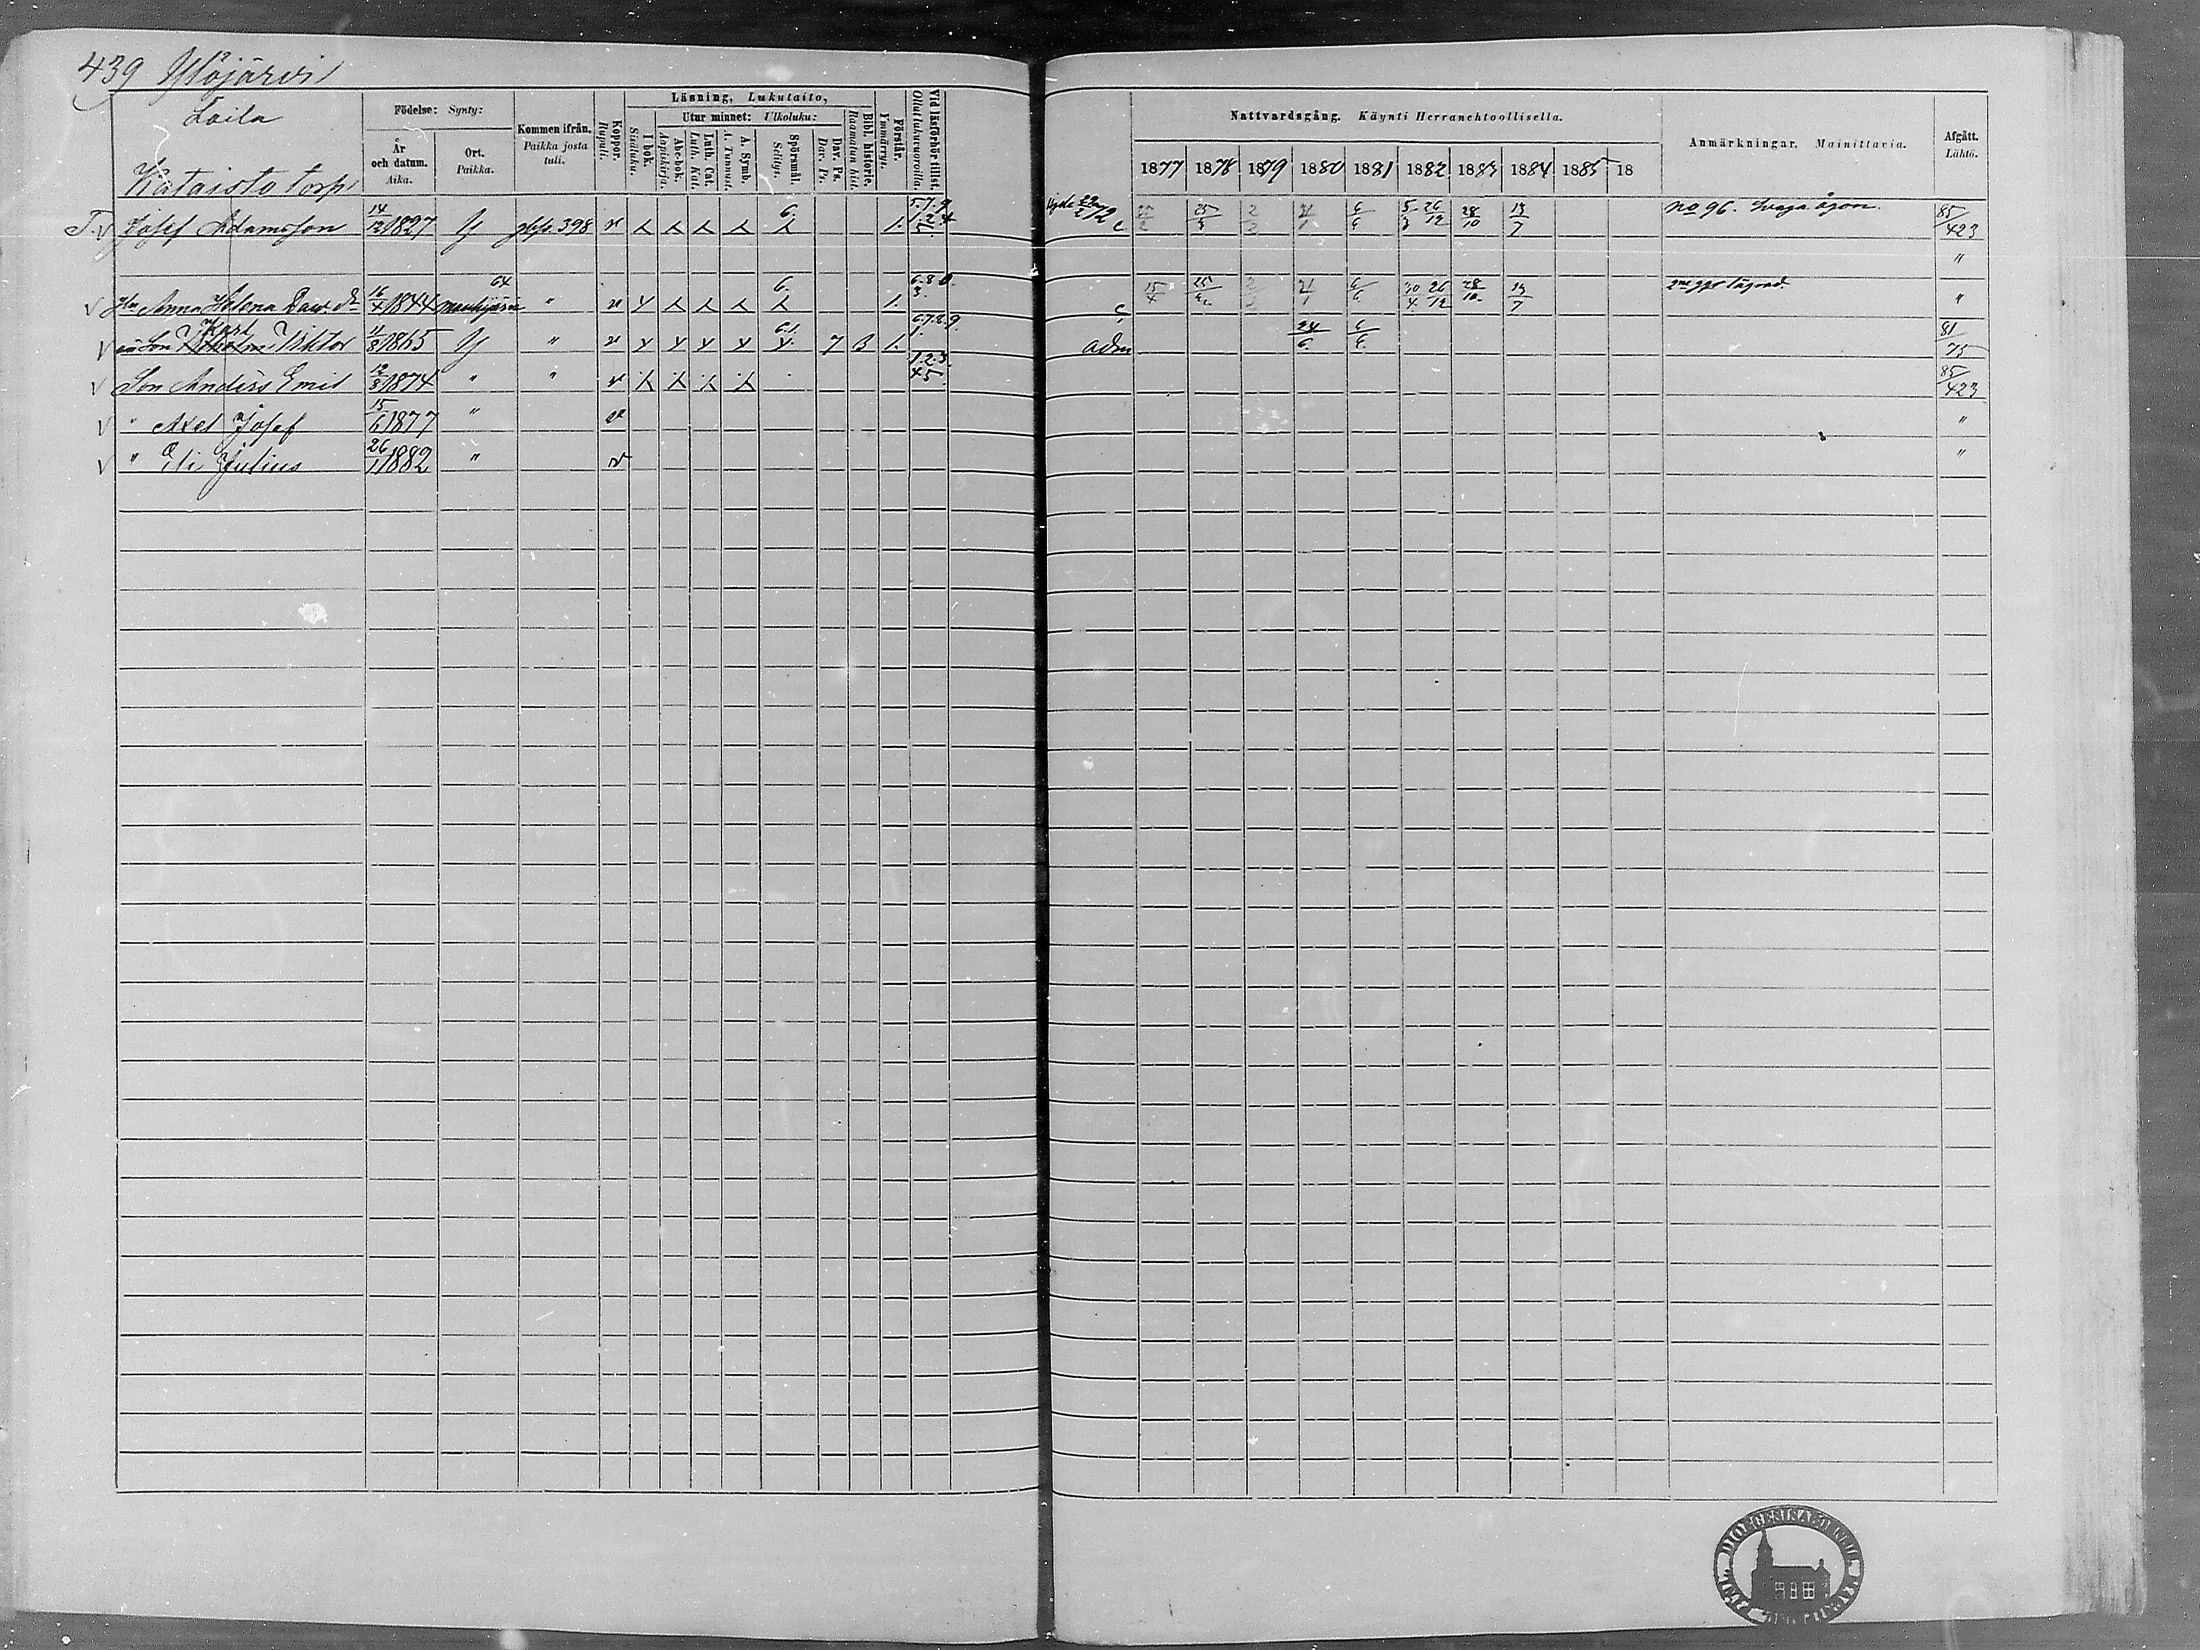 439 Ylöjärvi
Laila
Kataisto torp
Födelse: Synty:
År och datum. Aika.
Ort. Paikka.
Kommen ifrån. Paikka josta tuli.
Koppor. Rupuli.
Läsning, Lukutaito,
I bok. Sisäluku.
Utur minnet: Ulkoluku:
Abc-bok. Aapiskirja.
Luth. Cat. Luth. Kat.
A. Symb. A. Tunnust.
Spörsmål. Selitys.
Dav. Ps. Dav. Ps.
Bibl. historie. Raamatun hist.
Förstår. Ymmärrys.
Vid läsförhör tillst. Ollut lukuvuoroilla.
Nattvardsgång. Käynti Herranehtoollisella.
1877 1878 1879 1880 1881 1882 1883 1884 1885 18
Anmärkningar. Mainittavia.
Afgått. Lähtö.
T. Josef Adamsson 14/12 1827 Y 398 6. 1. 25/3 2/2 21/1 6/6 5/3 26/12 28/10 13/7 no 96. svaga ögon. 85/423
"
Hu Anna Helena Dav. dr 16/4 1844 " 6. 1. 15/4 2/2 21/1 6/6 30/4 26/12 28/10 13/7 "
Son Karl Viktor 11/8 1865 Y " 6.1. 7 3 1. adm 24/6 6/6 81/75
Son Anders Emil 12/8 1874 " " 1.2.3. 4 5. 85/423
" Axel Josef 15/6 1877 " "
" Eli Julius 26/1 1882 " "